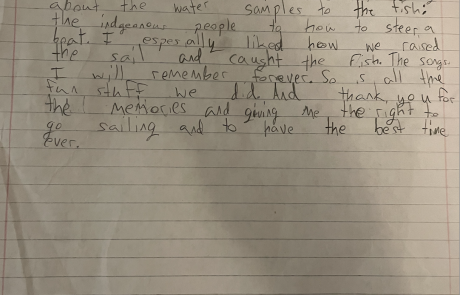 about the water samples to the fish:
the indgeaneous people to how to steer a
boat. I espesially liked how we raised
the sail and caught the fish. The songs
I will remember forever. So is all the
fun stuff we did. And thank you for
the memories and giving me the right to
go sailing and to have the best time
Ever.